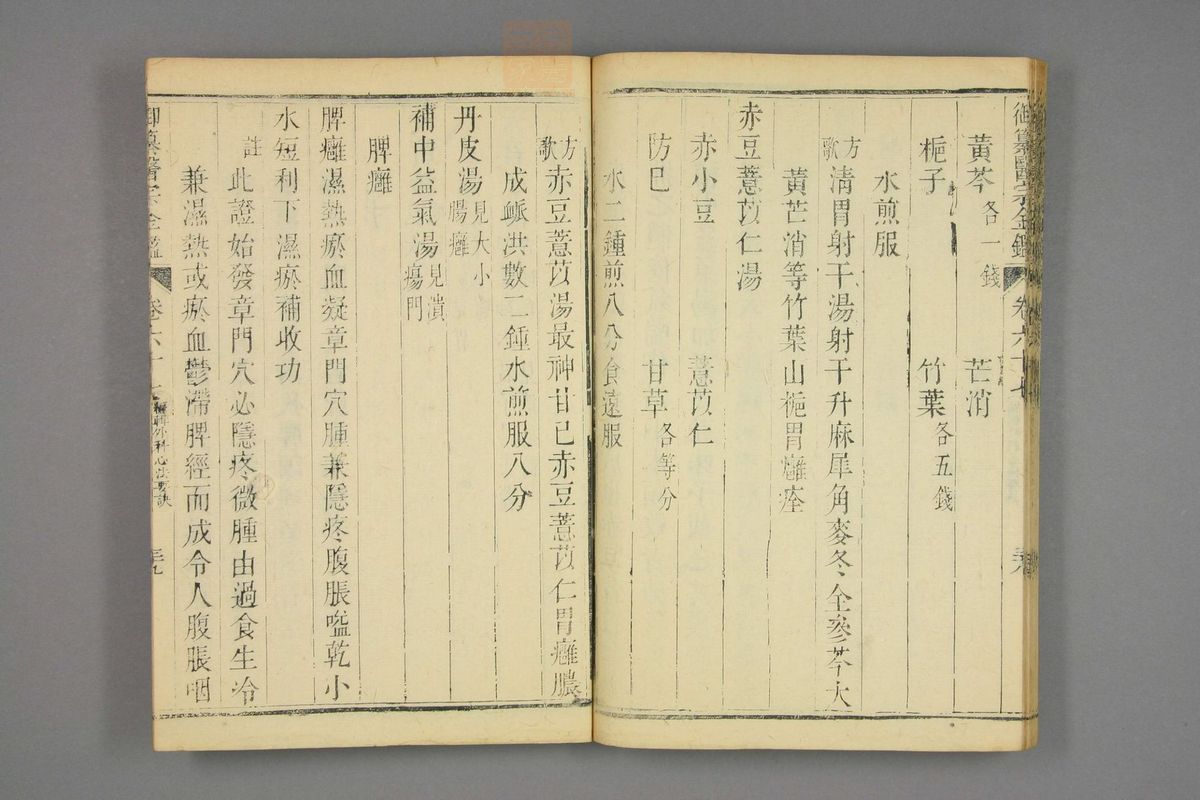 御纂醫宗金鑑 卷六十七 三十八
黃芩各一錢 芒消
梔子 竹葉各五錢
水煎服
方歌 清胃射干湯射干升麻犀角麥冬全參芩大
黃芒消等竹葉山梔胃癰痊
赤豆薏苡仁湯
赤小豆 薏苡仁
防巳 甘草各等分
水二鍾煎八分食遠服
方歌 赤豆薏苡湯最神甘已赤豆薏苡仁胃癰膿
成脈洪數二鍾水煎服八分
丹皮湯見大小腸癰
補中益氣湯見潰瘍門
脾癰
脾癰濕熱瘀血凝章門穴腫兼隱疼腹脹嗌乾小
水短利下濕瘀補收功
註 此證始發章門穴必隱疼微腫由過食生冷
兼濕熱或瘀血鬱滯脾經而成令人腹脹咽
御纂醫宗金鑑 卷六十七 編輯外科心法要訣 三十九